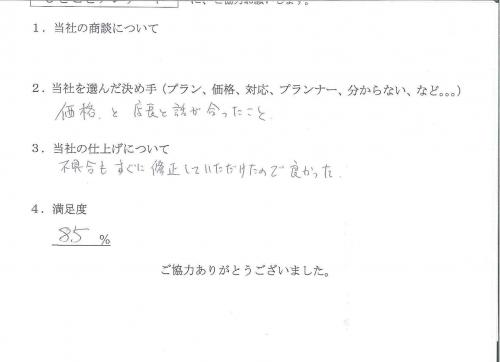 に、ご協力お願いします。
1．当社の商談について
2．当社を選んだ決め手（プラン、価格、対応、プランナー、分からない、など。。。）
価格、と 店長と話が合ったこと
3．当社の仕上げについて
不具合もすぐに修正していただけたので良かった。
4．満足度
85 %
ご協力ありがとうございました。